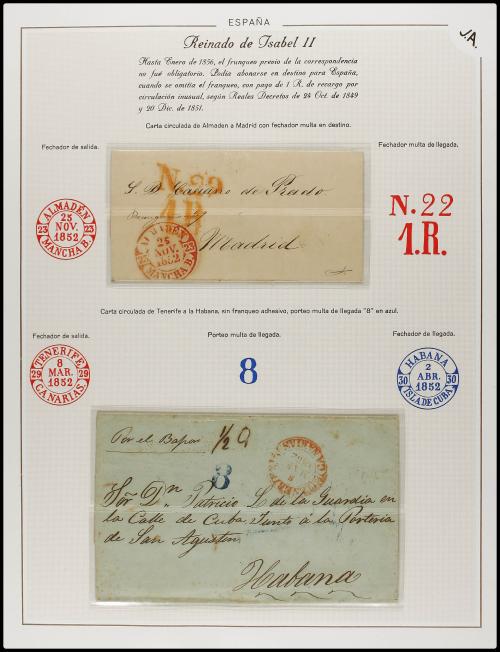 ESPAÑA
J.A.
Reinado de Isabel II
Hasta Enero de 1856, el franqueo previo de la correspondencia
no fué obligatorio. Podía abonarse en destino para España,
cuando se omitía el franqueo, con pago de 1 R. de recargo por
circulación inusual, según Reales Decretos de 24 Oct. de 1849
y 20 Dic. de 1851.
Carta circulada de Almaden a Madrid con fechador multa en destino.
Fechador de salida.
Fechador multa de llegada.
ALMADEN
25
NOV.
1852
23 23
MANCHA B.
N. 22
1 R.
S. D. Casiano de Prado
Madrid
ALMADEN
25
NOV.
1852
MANCHA B.
N. 22
1.R.
Carta circulada de Tenerife a la Habana, sin franqueo adhesivo, porteo multa de llegada "8" en azul.
Fechador de salida.
Porteo multa de llegada.
Fechador de llegada.
TENERIFE
8
MAR.
1852
29 29
CANARIAS
8
HABANA
2
ABR.
1852
30 30
ISLA DE CUBA
Por el Bapor
1/2
8
Sor. Dn. Patricio L. de la Guardia en
la Calle de Cuba Junto á la Porteria
de San Agustin
Habana